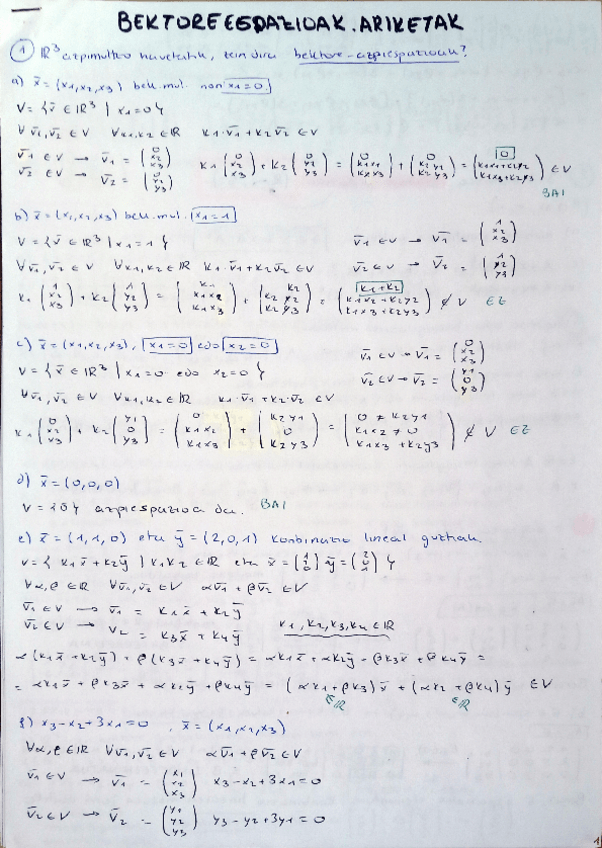 BEKTORE ESPAZIOAK. ARIKETAK
① ℝ³ azpimultzo hauetatik, zein dira bektore-azpiespazioak?
a) x̄ = (x₁, x₂, x₃) bek. mul. non x₁=0
V = {v̄ ∈ ℝ³ | x₁=0}
∀ v̄₁, v̄₂ ∈ V ∀k₁,k₂ ∈ ℝ k₁·v̄₁+k₂v̄₂ ∈ V
v̄₁ ∈ V → v̄₁ = (0 x₂ x₃)
v̄₂ ∈ V → v̄₂ = (0 y₂ y₃)
k₁ (0 x₂ x₃) + k₂ (0 y₂ y₃) = (0 k₁x₂ k₁x₃) + (0 k₂y₂ k₂y₃) = (0 k₁x₂+k₂y₂ k₁x₃+k₂y₃) ∈ V
BAI
b) x̄ = (x₁, x₂, x₃) bek. mul. x₁=1
V = {v̄ ∈ ℝ³ | x₁=1} v̄₁ ∈ V → v̄₁ = (1 x₂ x₃)
∀v̄₁, v̄₂ ∈ V ∀k₁,k₂ ∈ ℝ k₁·v̄₁+k₂v̄₂ ∈ V v̄₂ ∈ V → v̄₂ = (1 y₂ y₃)
k₁ (1 x₂ x₃) + k₂ (1 y₂ y₃) = (k₁ k₁x₂ k₁x₃) + (k₂ k₂y₂ k₂y₃) = (k₁+k₂ k₁x₂+k₂y₂ k₁x₃+k₂y₃) ∉ V EZ
c) x̄ = (x₁, x₂, x₃), x₁=0 edo x₂=0 v̄₁ ∈ V → v̄₁ = (0 x₂ x₃)
V = {v̄ ∈ ℝ³ | x₁=0 edo x₂=0} v̄₂ ∈ V → v̄₂ = (y₁ 0 y₃)
∀v̄₁, v̄₂ ∈ V ∀k₁,k₂ ∈ ℝ k₁·v̄₁+k₂·v̄₂ ∈ V
k₁ (0 x₂ x₃) + k₂ (y₁ 0 y₃) = (0 k₁x₂ k₁x₃) + (k₂y₁ 0 k₂y₃) = (0 ≠ k₂y₁ k₁x₂ ≠ 0 k₁x₃ + k₂y₃) ∉ V EZ
d) x̄ = (0,0,0)
V = {0} azpiespazioa da. BAI
e) x̄ = (1,1,0) eta ȳ = (2,0,1) konbinazio lineal guztiak
V = {k₁x̄ + k₂ȳ | k₁k₂ ∈ ℝ eta x̄ = (1 1 0) ȳ = (2 0 1)}
∀α,β ∈ ℝ ∀v̄₁,v̄₂ ∈ V αv̄₁ + βv̄₂ ∈ V
v̄₁ ∈ V → v̄₁ = k₁x̄ + k₂ȳ
v̄₂ ∈ V → v̄₂ = k₃x̄ + k₄ȳ k₁, k₂, k₃, k₄ ∈ ℝ
α(k₁x̄ + k₂ȳ) + β(k₃x̄ + k₄ȳ) = αk₁x̄ + αk₂ȳ + βk₃x̄ + βk₄ȳ =
= αk₁x̄ + βk₃x̄ + αk₂ȳ + βk₄ȳ = (αk₁ + βk₃)x̄ + (αk₂ + βk₄)ȳ ∈ V
∈ℝ ∈ℝ
f) x₃-x₂+3x₁=0, x̄ = (x₁, x₂, x₃)
∀α,β ∈ ℝ ∀v̄₁,v̄₂ ∈ V αv̄₁ + βv̄₂ ∈ V
v̄₁ ∈ V → v̄₁ = (x₁ x₂ x₃) x₃-x₂+3x₁=0
v̄₂ ∈ V → v̄₂ = (y₁ y₂ y₃) y₃-y₂+3y₁=0
1